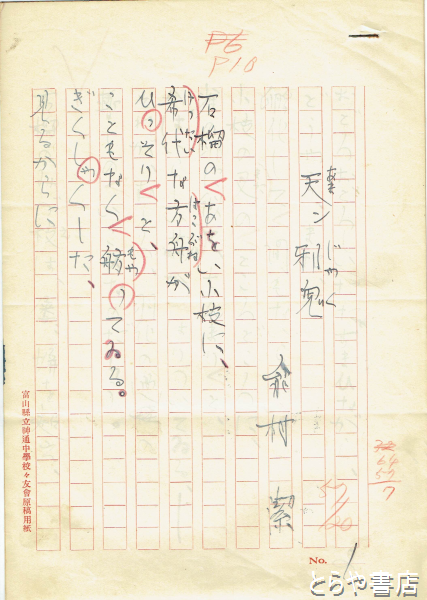 P6
P18
天ン邪鬼
あま
じゃく
村 潔
石榴のあをい小枝に、
希代な方舟が
けったい
はこぶね
ひっそりくと、
こともなく舫ってゐる。
もや
ぎくしゃくした、
見るからに
富山縣立神通中學校々友會原稿用紙
64
57
7
57/20
No. 1
とらや書店